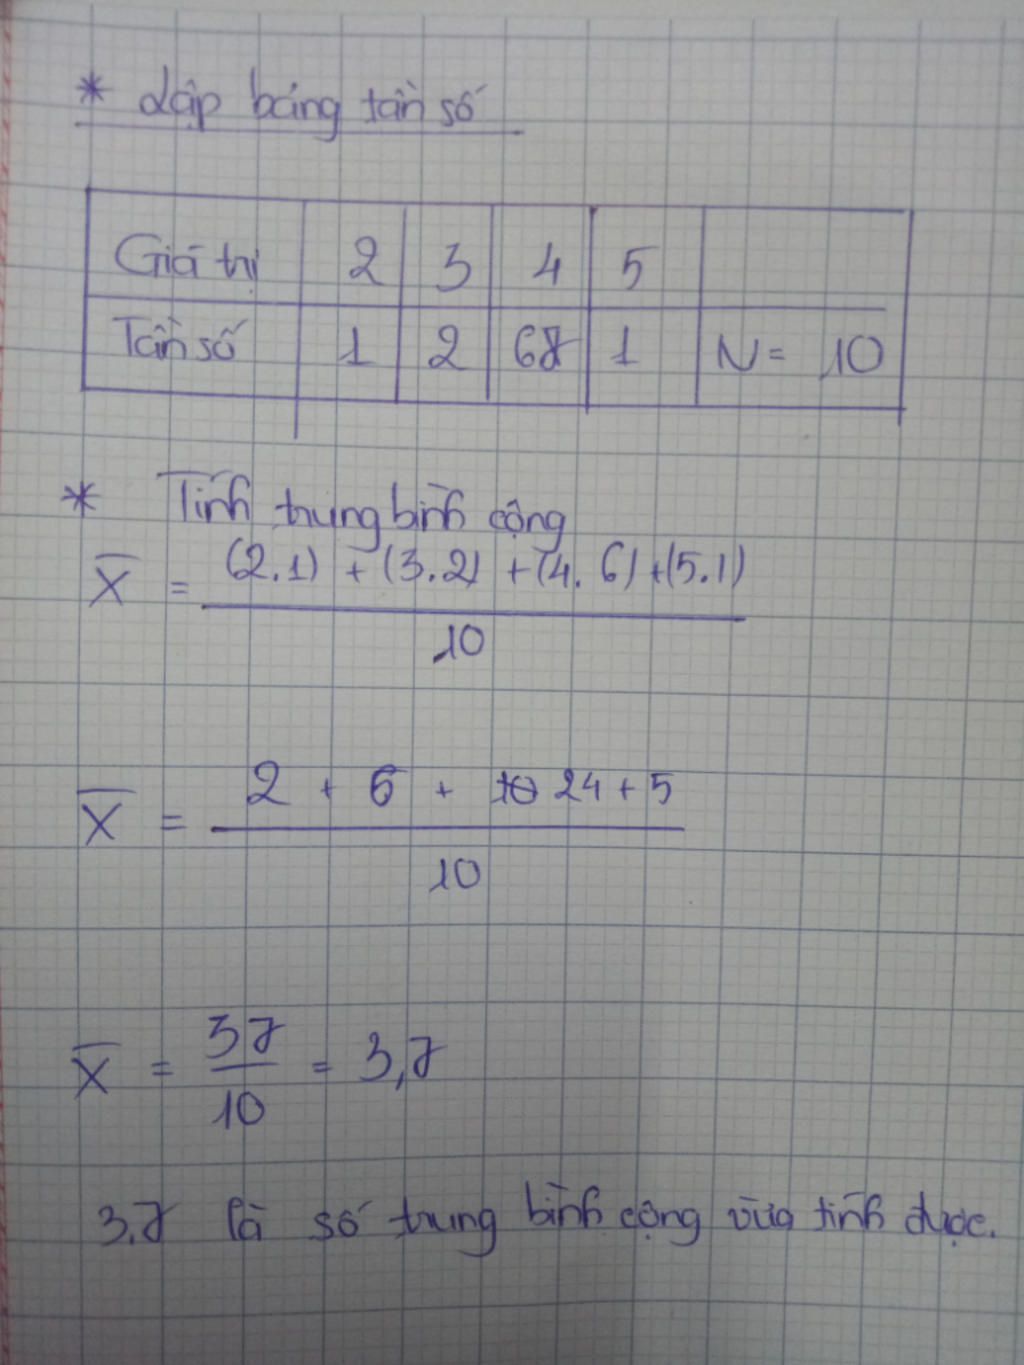 * Lập bảng tần số
Giá trị 2 3 4 5
Tần số 1 2 6 1 N = 10
* Tính trung bình cộng
X̄ = (2.1) + (3.2) + (4.6) + (5.1)
10
X̄ = 2 + 6 + 24 + 5
10
X̄ = 37 = 3,7
10
3,7 là số trung bình cộng vừa tính được.